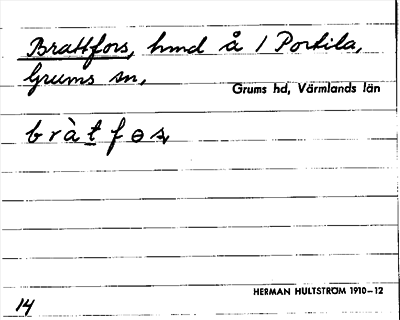 Brattfors, hmd å 1 Portila,
Grums sn,
Grums hd, Värmlands län
bràt̲fɵs
HERMAN HULTSTRÖM 1910–12
14